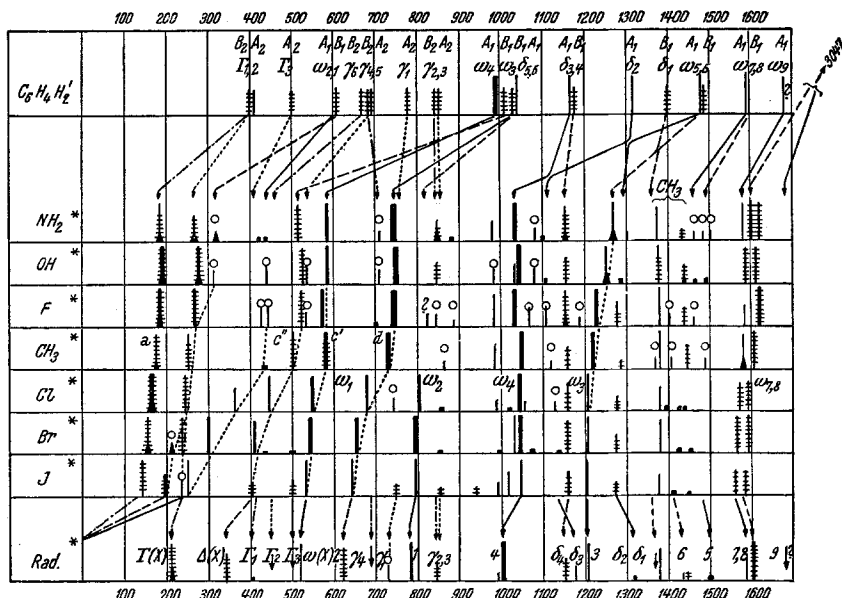 100 200 300 400 500 600 700 800 900 1000 1100 1200 1300 1400 1500 1600
B₂ A₂ A₂ A₁ B₁ B₂ B₂ A₂ A₂ B₂ A₂ A₁ B₁ B₁ A₁ A₁ B₁ A₁ B₁ A₁ B₁ A₁ B₁ A₁
Γ₁,₂ Γ₃ ω₂,₁ γ₆ γ₄,₅ γ₁ γ₂,₃ ω₄ ω₃ δ₅,₆ δ₃,₄ δ₂ δ₁ ω₅,₆ ω₇,₈ ω₉
C₆ H₄ H₂' ?
CH₃
NH₂ *
OH *
F * ?
CH₃ * a c" c' d
Cl * ω₁ ω₂ ω₄ ω₃ ω₇,₈
Br *
J *
Rad. * Γ(X) Δ(X) Γ₁ Γ₂ Γ₃ ω(X) 2 γ₄ 1 γ₂,₃ 4 δ₄ δ₃ 3 δ₂ δ₁ 6 5 7,8 9 ?
100 200 300 400 500 600 700 800 900 1000 1100 1200 1300 1400 1500 1600